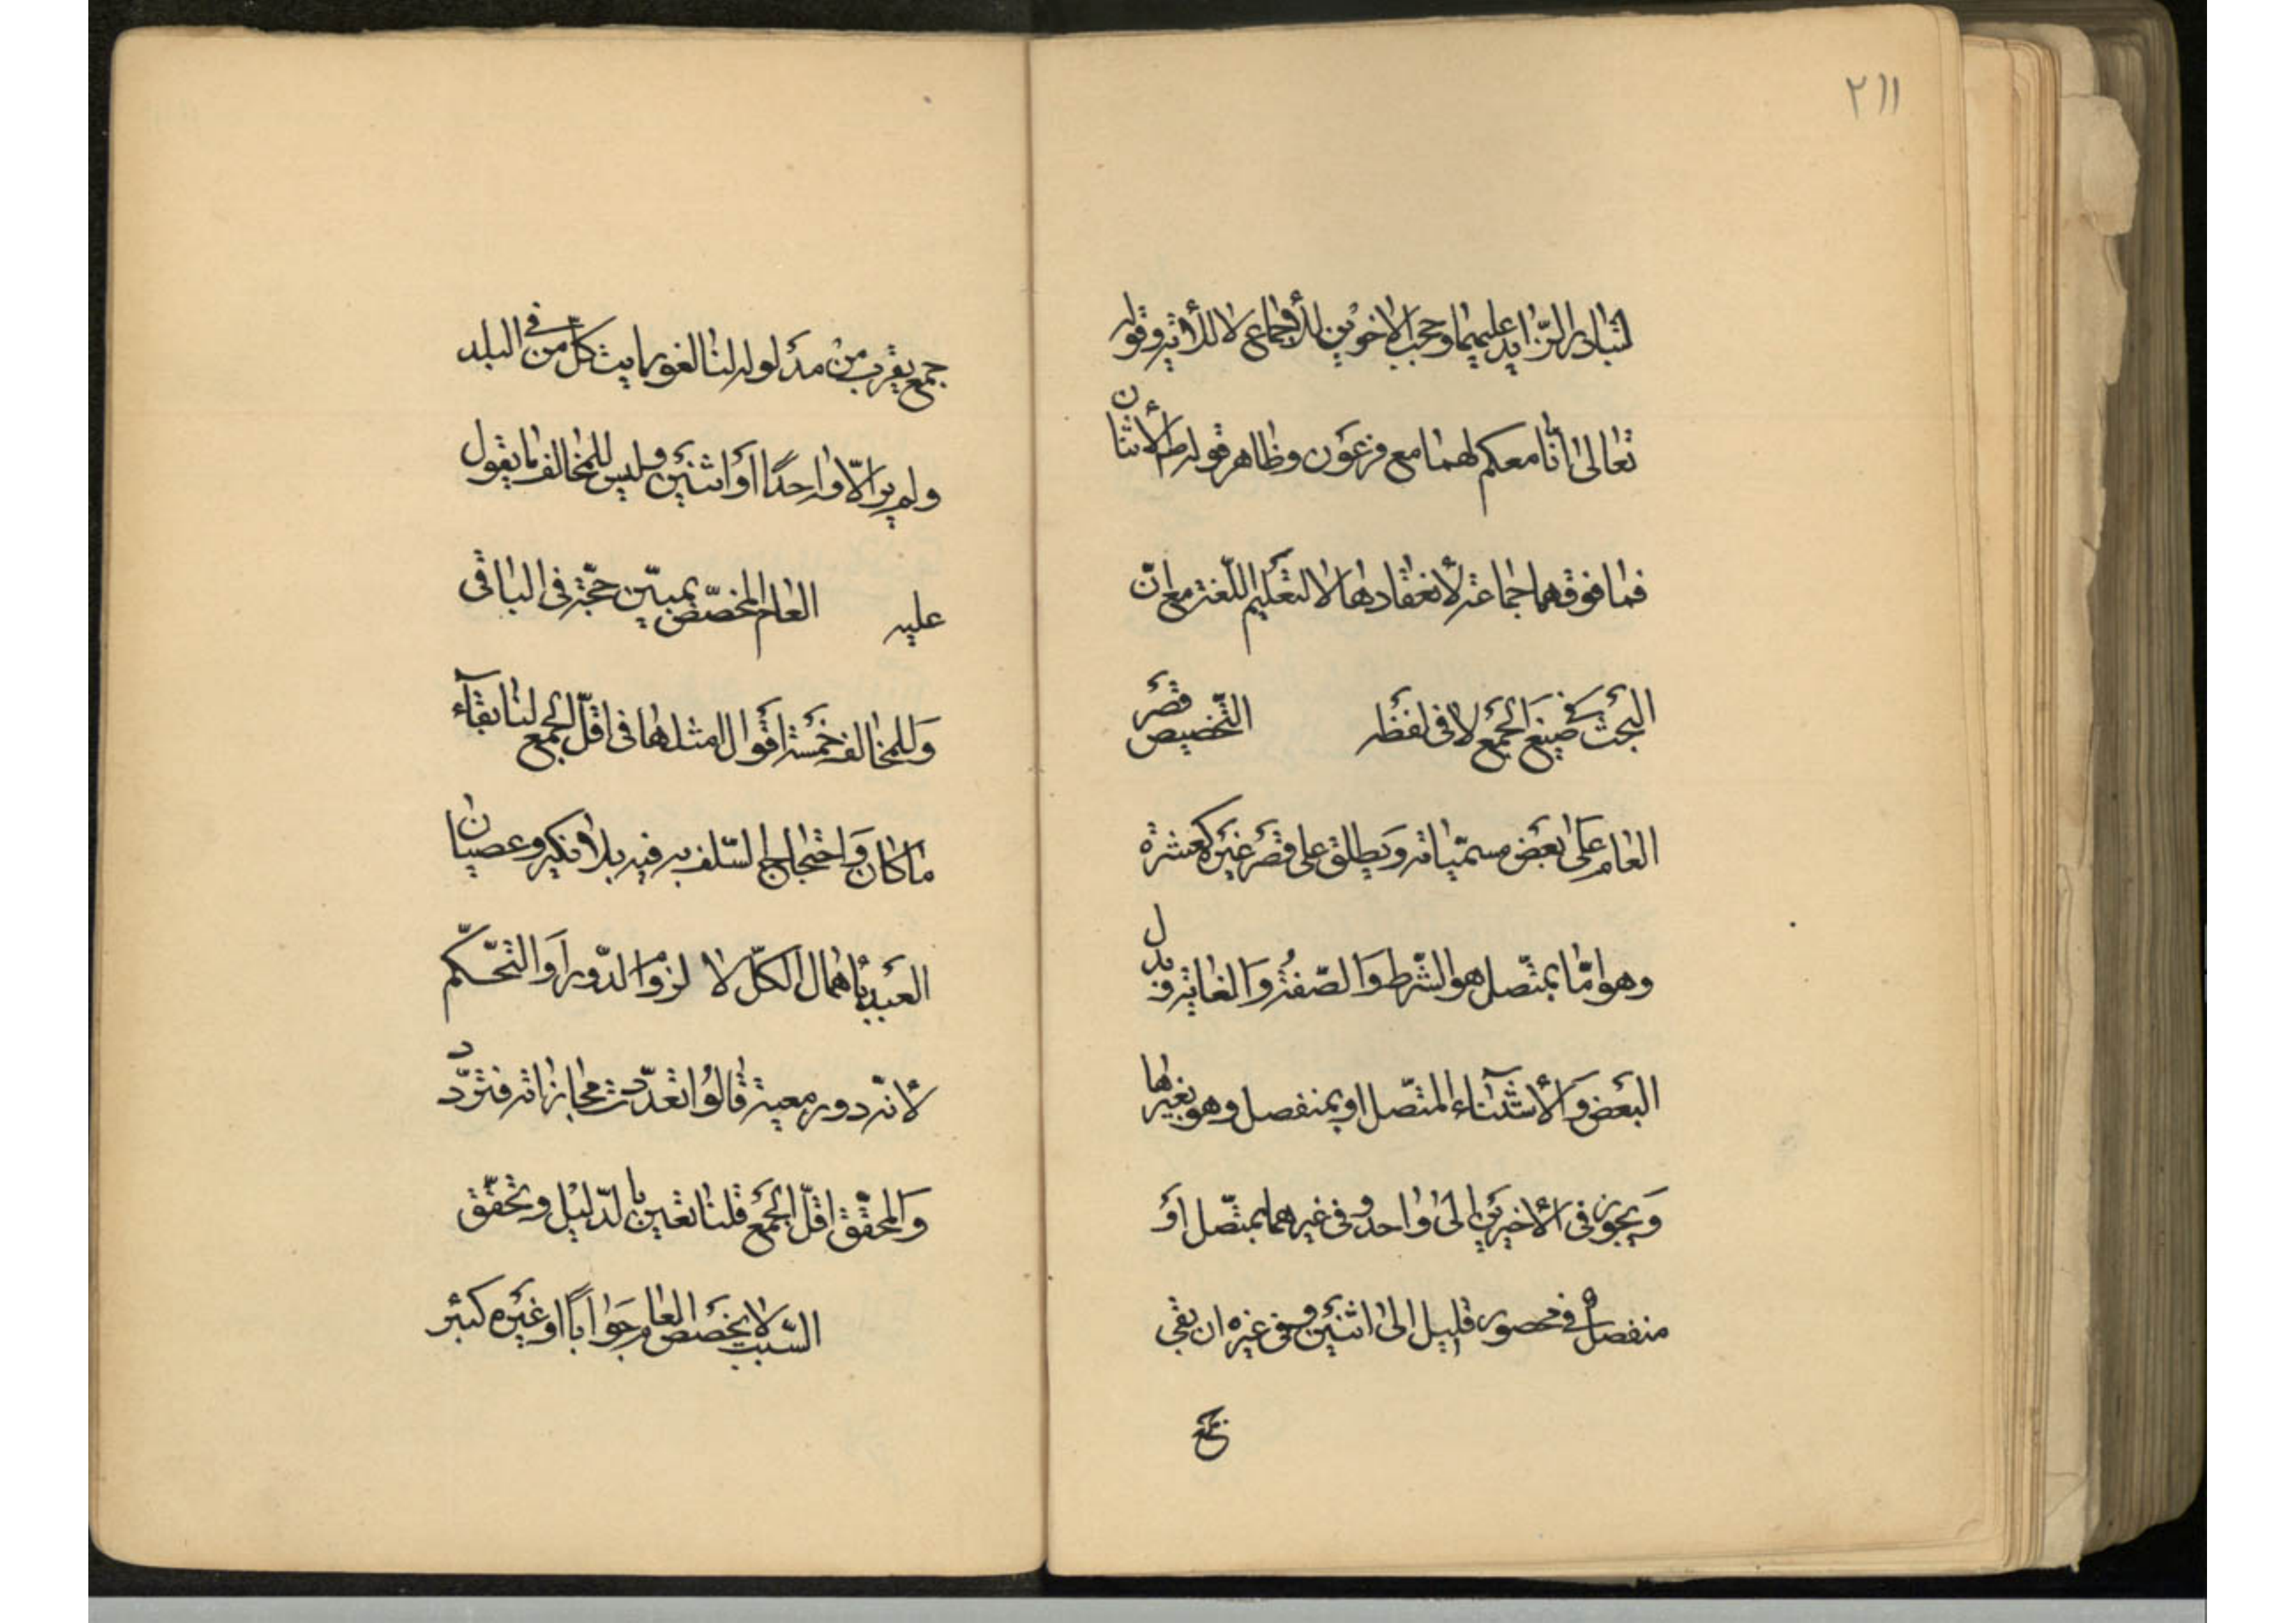 ٢١١
لتبادر الزّايد عليهما وحجب الاخوين للأجماع لا للأية وقوله
تعالى انّا معكم لهما مع فرعون وظاهر قوله ط الأثنان
فما فوقهما جماعة لأنعقادها لا لتعليم اللّغة مع انّ
البحث في صيغ الجمع لا في لفظه التّخصيص قصر
العام على بعض مسمّياته ويطلق على قصر غيره كعشرة
وهو امّا بمتّصل هو الشّرط والصّفة والغاية وبدل
البعض والأستثناء المتّصل او بمنفصل وهو بغيرها
ويجوز في الأخيرين الى واحد وفي غيرهما بمتّصل او
منفصل في محصور قليل الى اثنين وفي غيره ان بقي
جمع
جمع يقرب من مدلوله لنا لغو رايت كلّ من في البلد
ولم ير الّا واحدًا او اثنين وليس للمخالف ما يقول
عليه العام المخصّص بمبيّن حجّة في الباقي
وللمخالف خمسة اقوال امثلها في اقلّ الجمع لنا بقآء
ما كان واحتجاج السّلف به فيه بلا نكير وعصيان
العبد بأهمال الكلّ لا لزوم الدّور او التّحكّم
لأنّه دور معية قالوا تعدّدت مجازاته فتردّد
والمحقّق اقلّ الجمع قلنا تعين بالدّليل وتحقّق
السّبب لا يخصص العام جوابًا او غيره كبئر